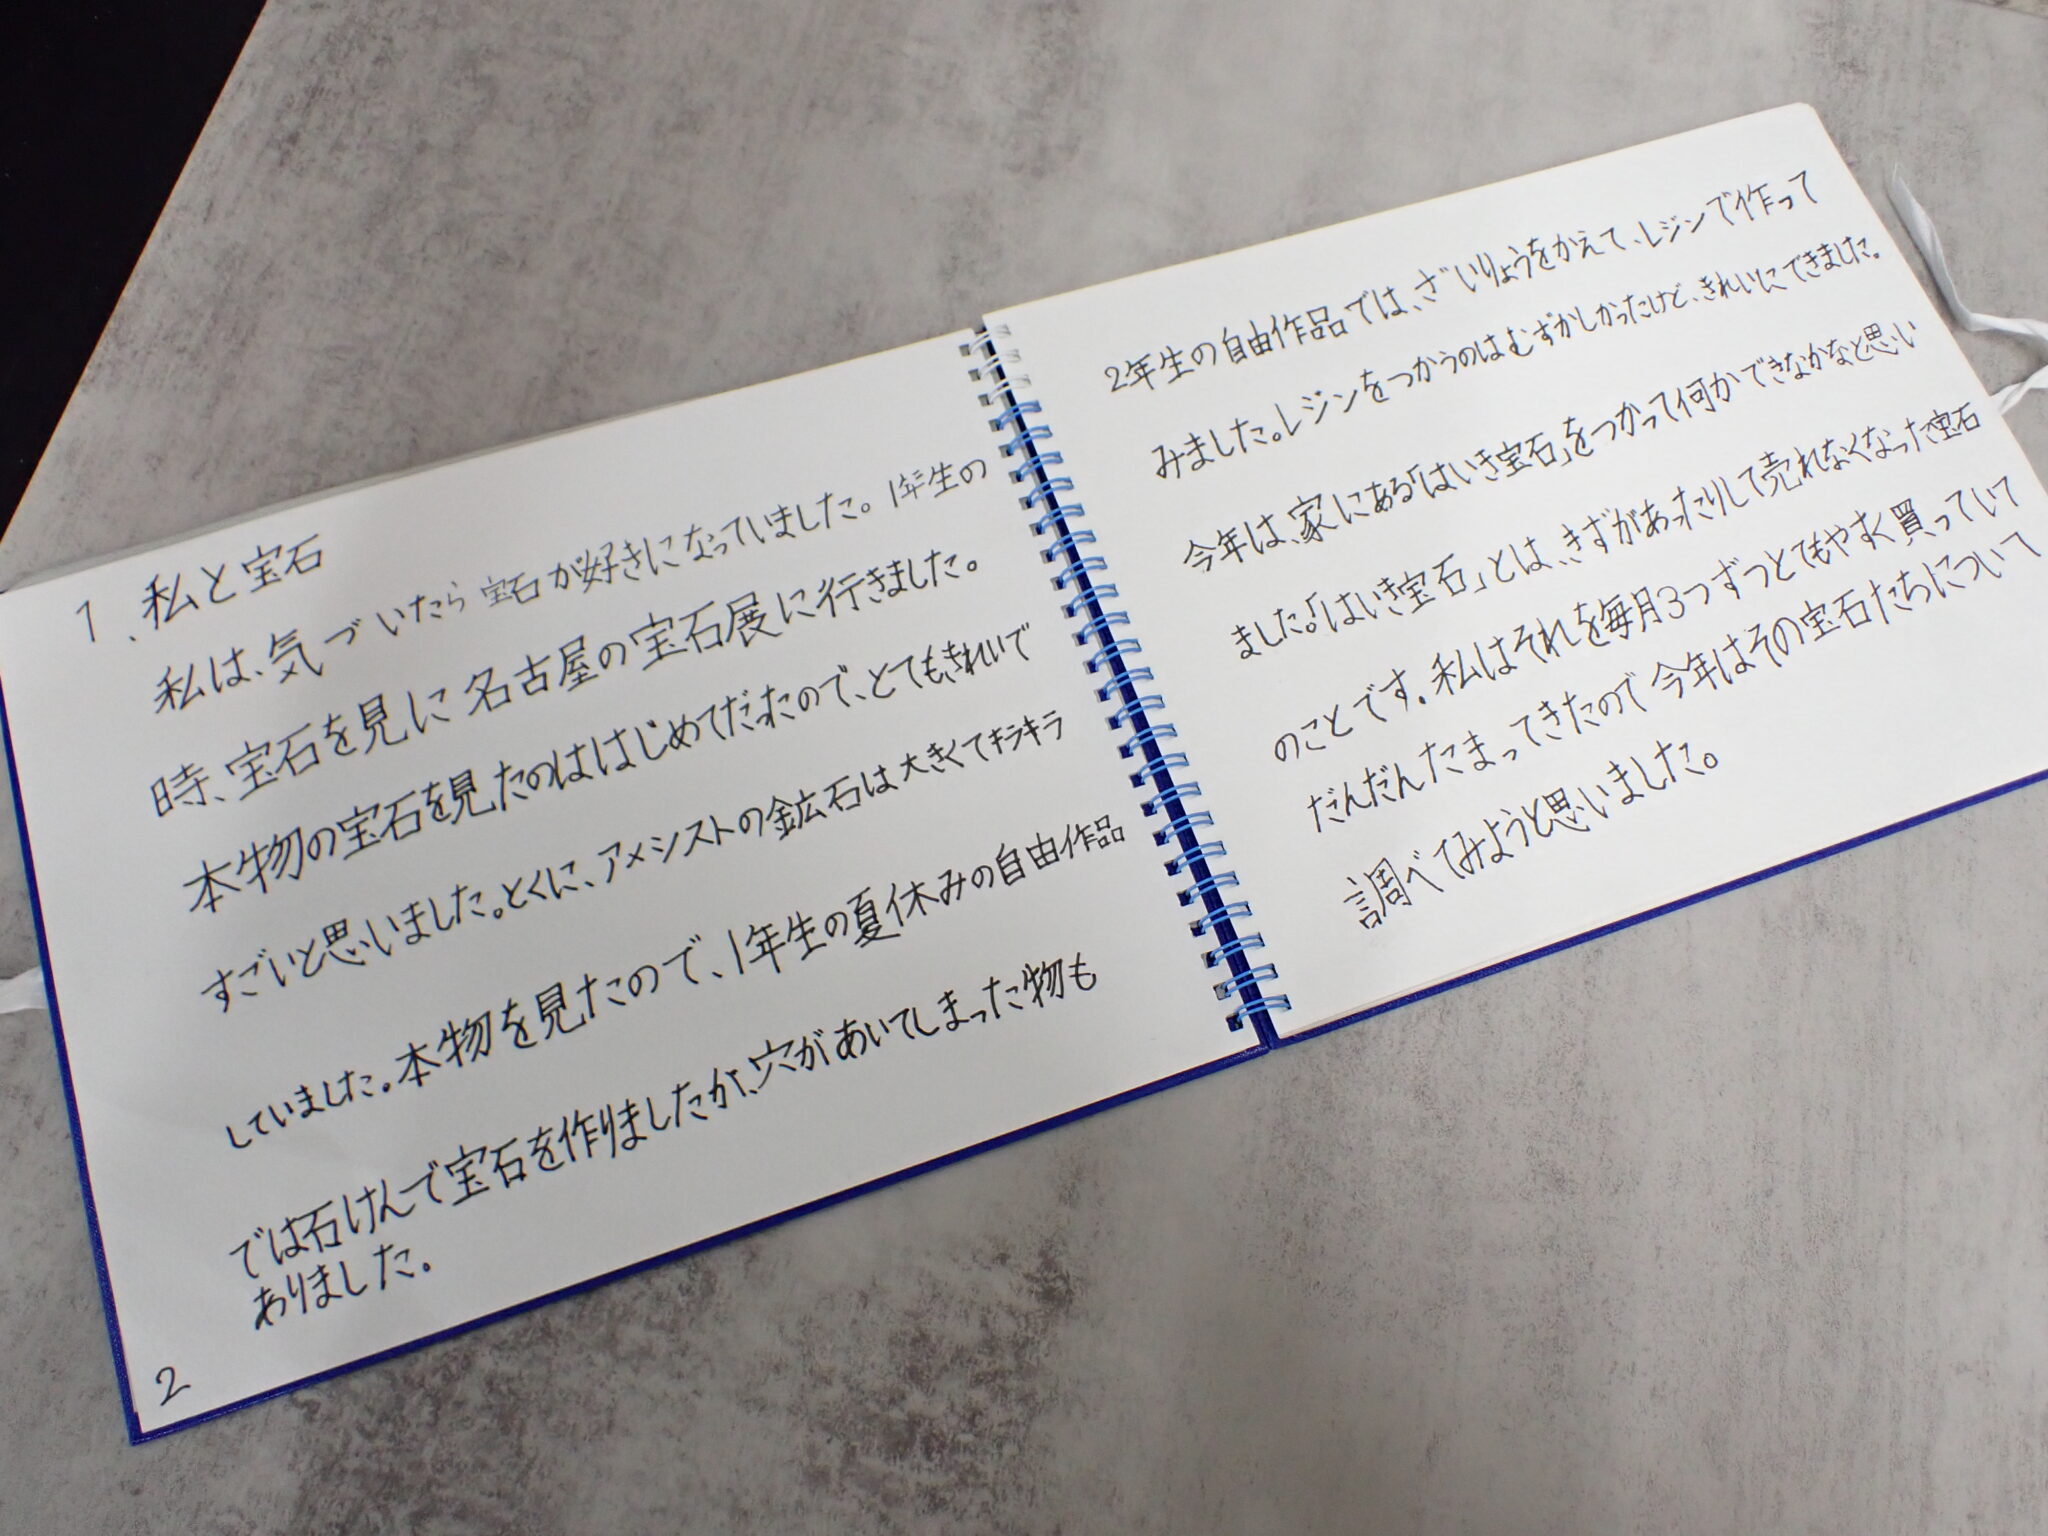 1、私と宝石
私は、気づいたら宝石が好きになっていました。1年生の
時、宝石を見に名古屋の宝石展に行きました。
本物の宝石を見たのははじめてだったので、とてもきれいで
すごいと思いました。とくに、アメシストの鉱石は大きくてキラキラ
していました。本物を見たので、1年生の夏休みの自由作品
では石けんで宝石を作りましたが、穴があいてしまった物も
ありました。
2
2年生の自由作品では、ざいりょうをかえて、レジンで作って
みました。レジンをつかうのはむずかしかったけど、きれいにできました。
今年は、家にある「はいき宝石」をつかって何かできなかなと思い
ました。「はいき宝石」とは、きずがあったりして売れなくなった宝石
のことです。私はそれを毎月3つずつとてもやすく買っていて
だんだんたまってきたので今年はその宝石たちについて
調べてみようと思いました。